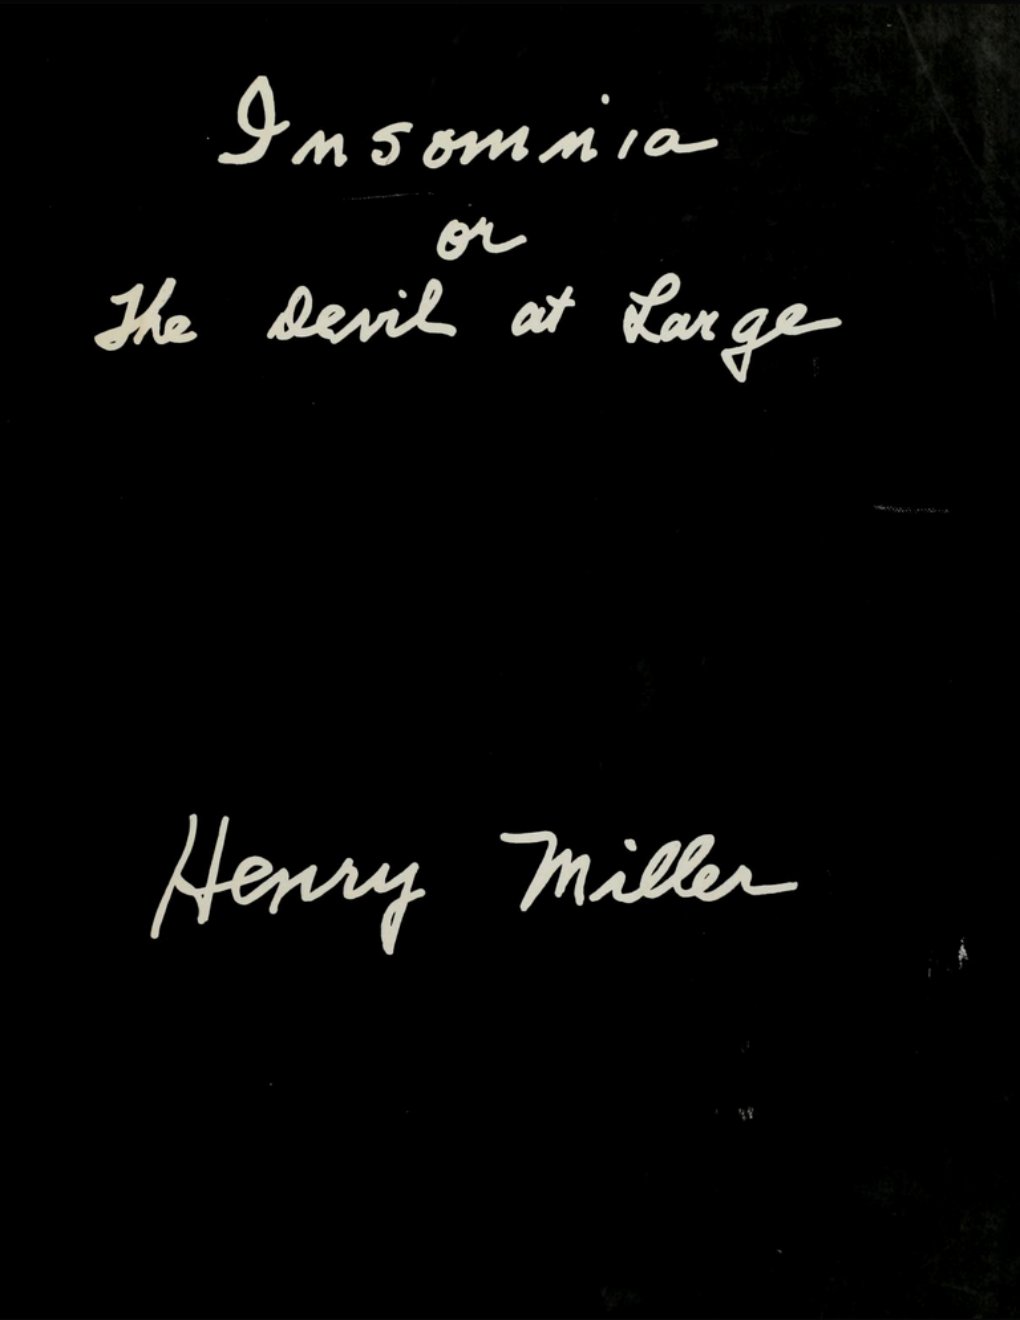 Insomnia
or
The Devil at Large
Henry Miller